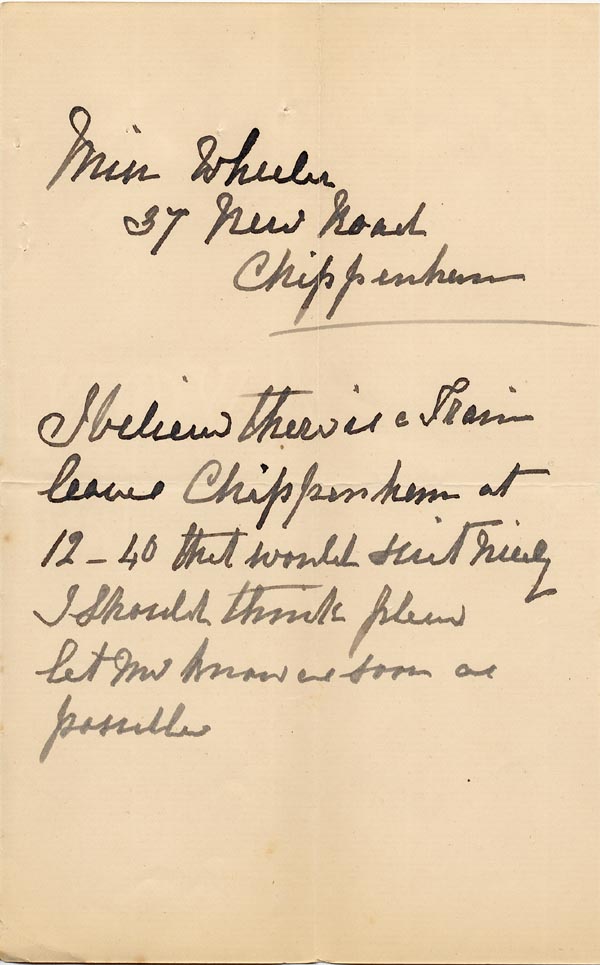 Miss Wheeler
37 New Road
Chippenham
I believe there is a Train
leaves Chippenham at
12-40 that would suit nicely
I should think please
let me know as soon as
possible